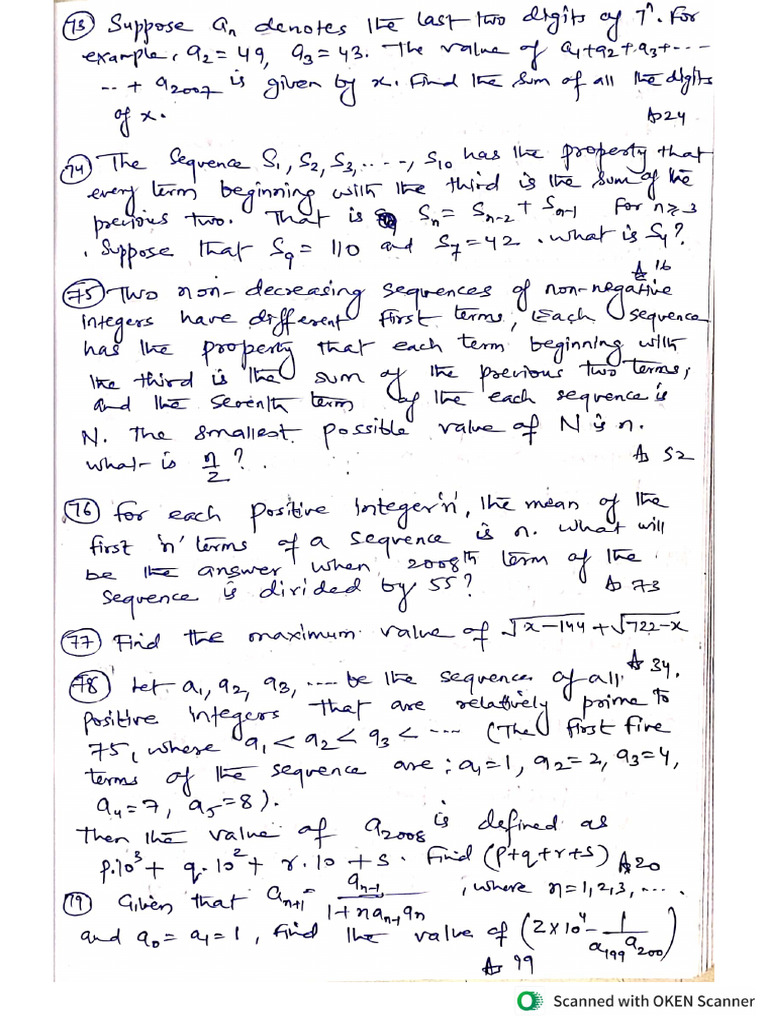 (73) Suppose aₙ denotes the last two digits of 7ⁿ. For
example, a₂ = 49, a₃ = 43. The value of a₁+a₂+a₃+---
-- + a₂₀₀₇ is given by x. Find the sum of all the digits
of x.
A 24
(74) The sequence S₁, S₂, S₃, ----, S₁₀ has the property that
every term beginning with the third is the sum of the
previous two. That is Sₙ = Sₙ₋₂ + Sₙ₋₁ for n ≥ 3
. Suppose that S₉ = 110 and S₇ = 42. what is S₄?
A 16
(75) Two non-decreasing sequences of non-negative
integers have different first terms, Each sequence
has the property that each term beginning with
the third is the sum of the previous two terms,
and the seventh term of the each sequence is
N. The smallest possible value of N is n.
what is n/2?
A 52
(76) for each positive integer 'n', the mean of the
first 'n' terms of a sequence is n. what will
be the answer when 2008th term of the
sequence is divided by 55?
A 73
(77) Find the maximum value of √x-144 + √722-x
A 34.
(78) Let a₁, a₂, a₃, ---- be the sequence of all
positive integers that are relatively prime to
75, where a₁ < a₂ < a₃ < --- (The first five
terms of the sequence are: a₁=1, a₂=2, a₃=4,
a₄=7, a₅=8).
Then the value of a₂₀₀₈ is defined as
p.10³ + q.10² + r.10 + s. Find (p+q+r+s) A 20
(79) Given that aₙ₊₁ = aₙ₋₁/1+n aₙ₋₁ aₙ, where n=1,2,3, ----.
and a₀ = a₁ = 1, find the value of (2×10⁴ - 1/a₁₉₉ a₂₀₀)
A 99
Scanned with OKEN Scanner